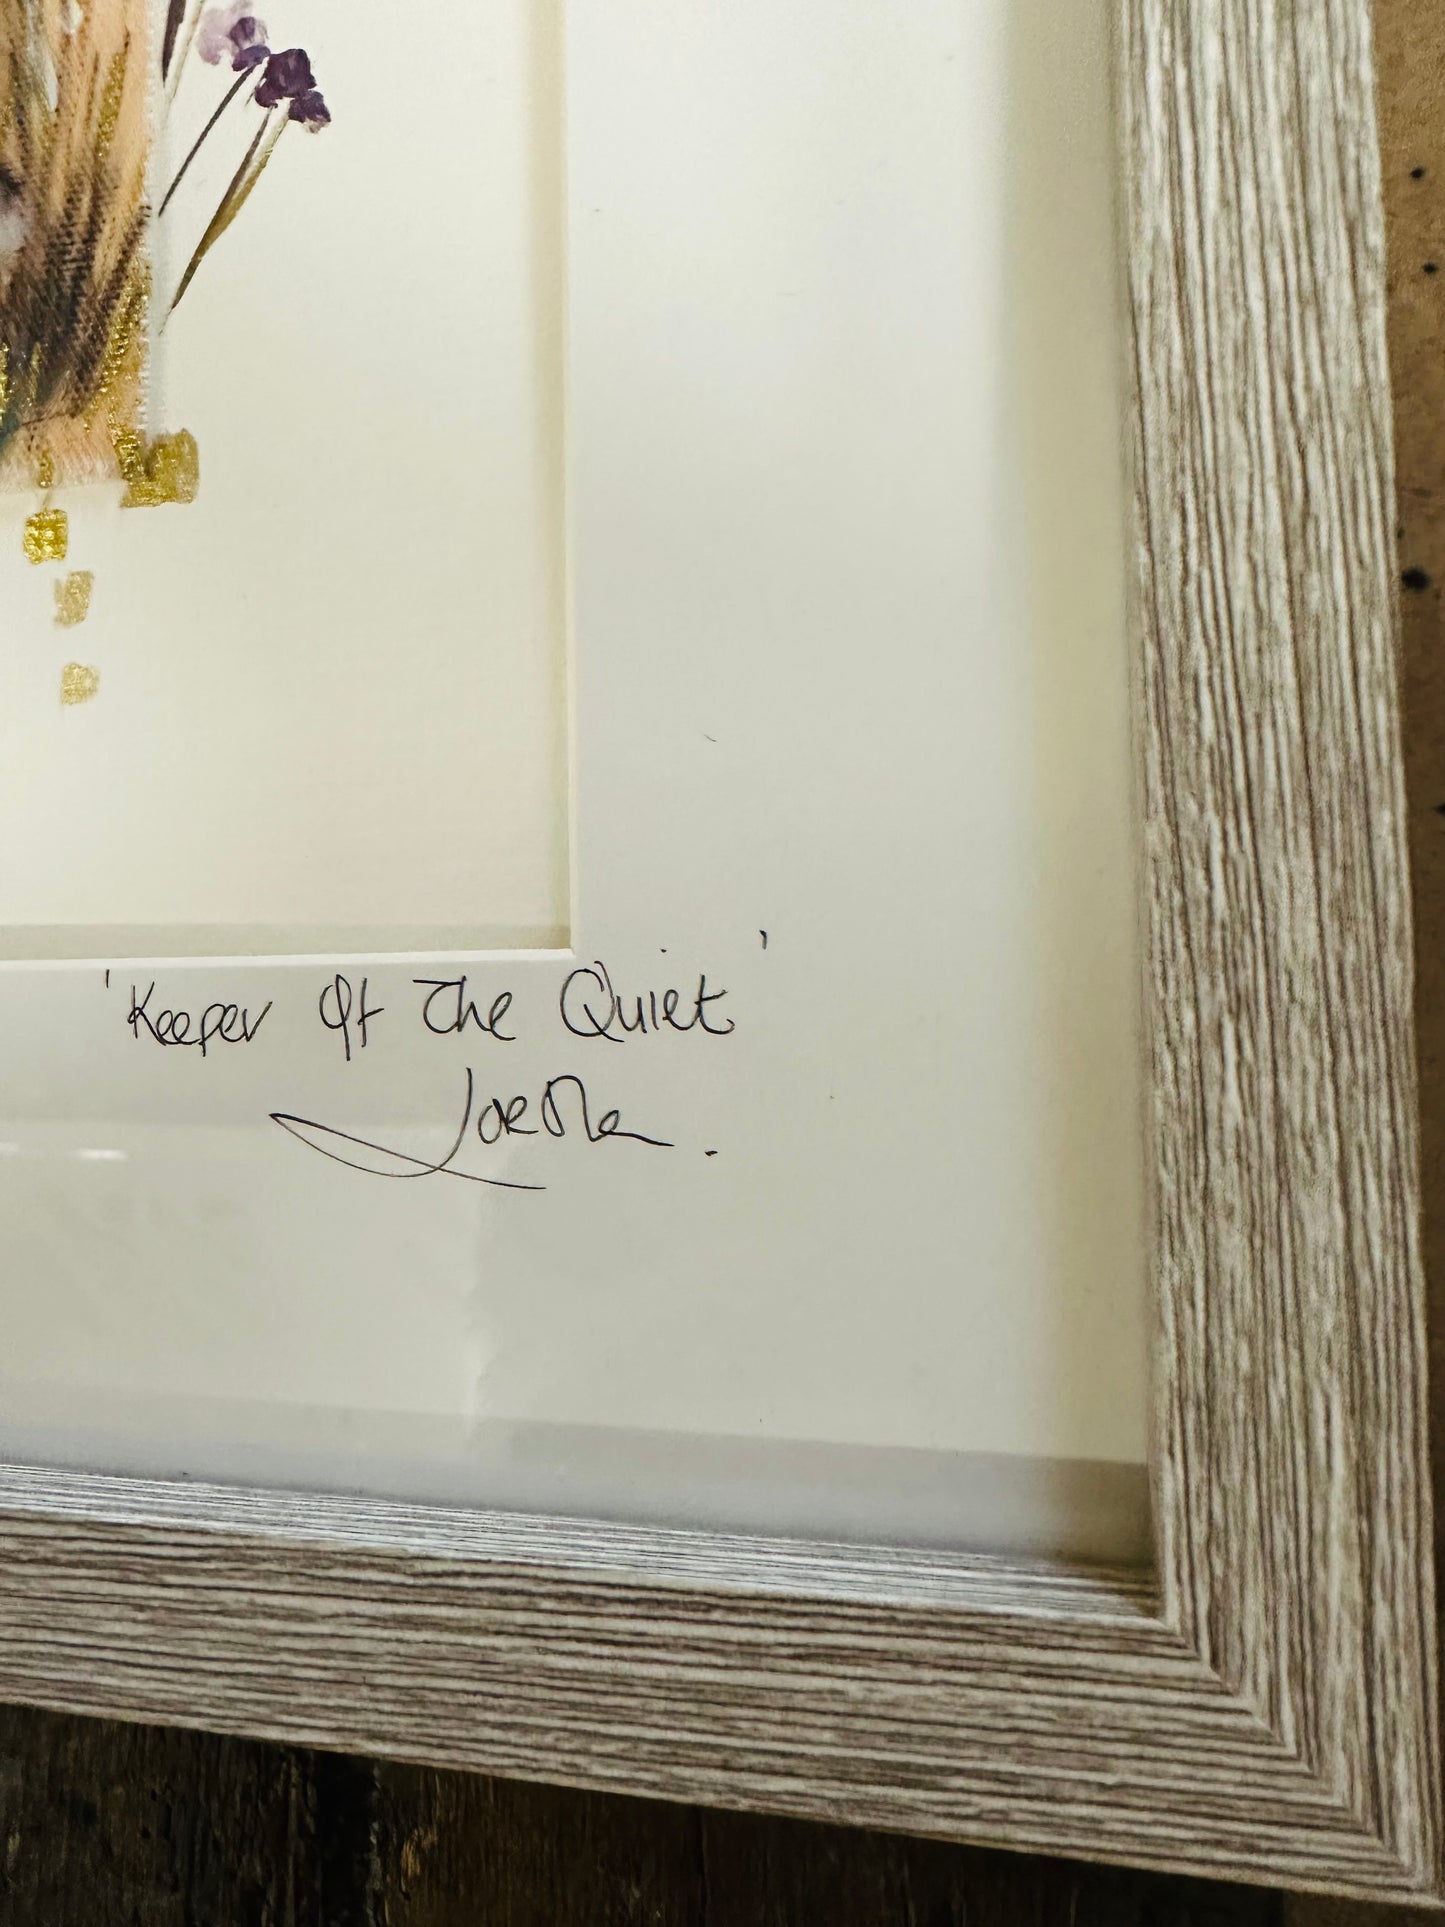 'Keeper Of The Quiet'